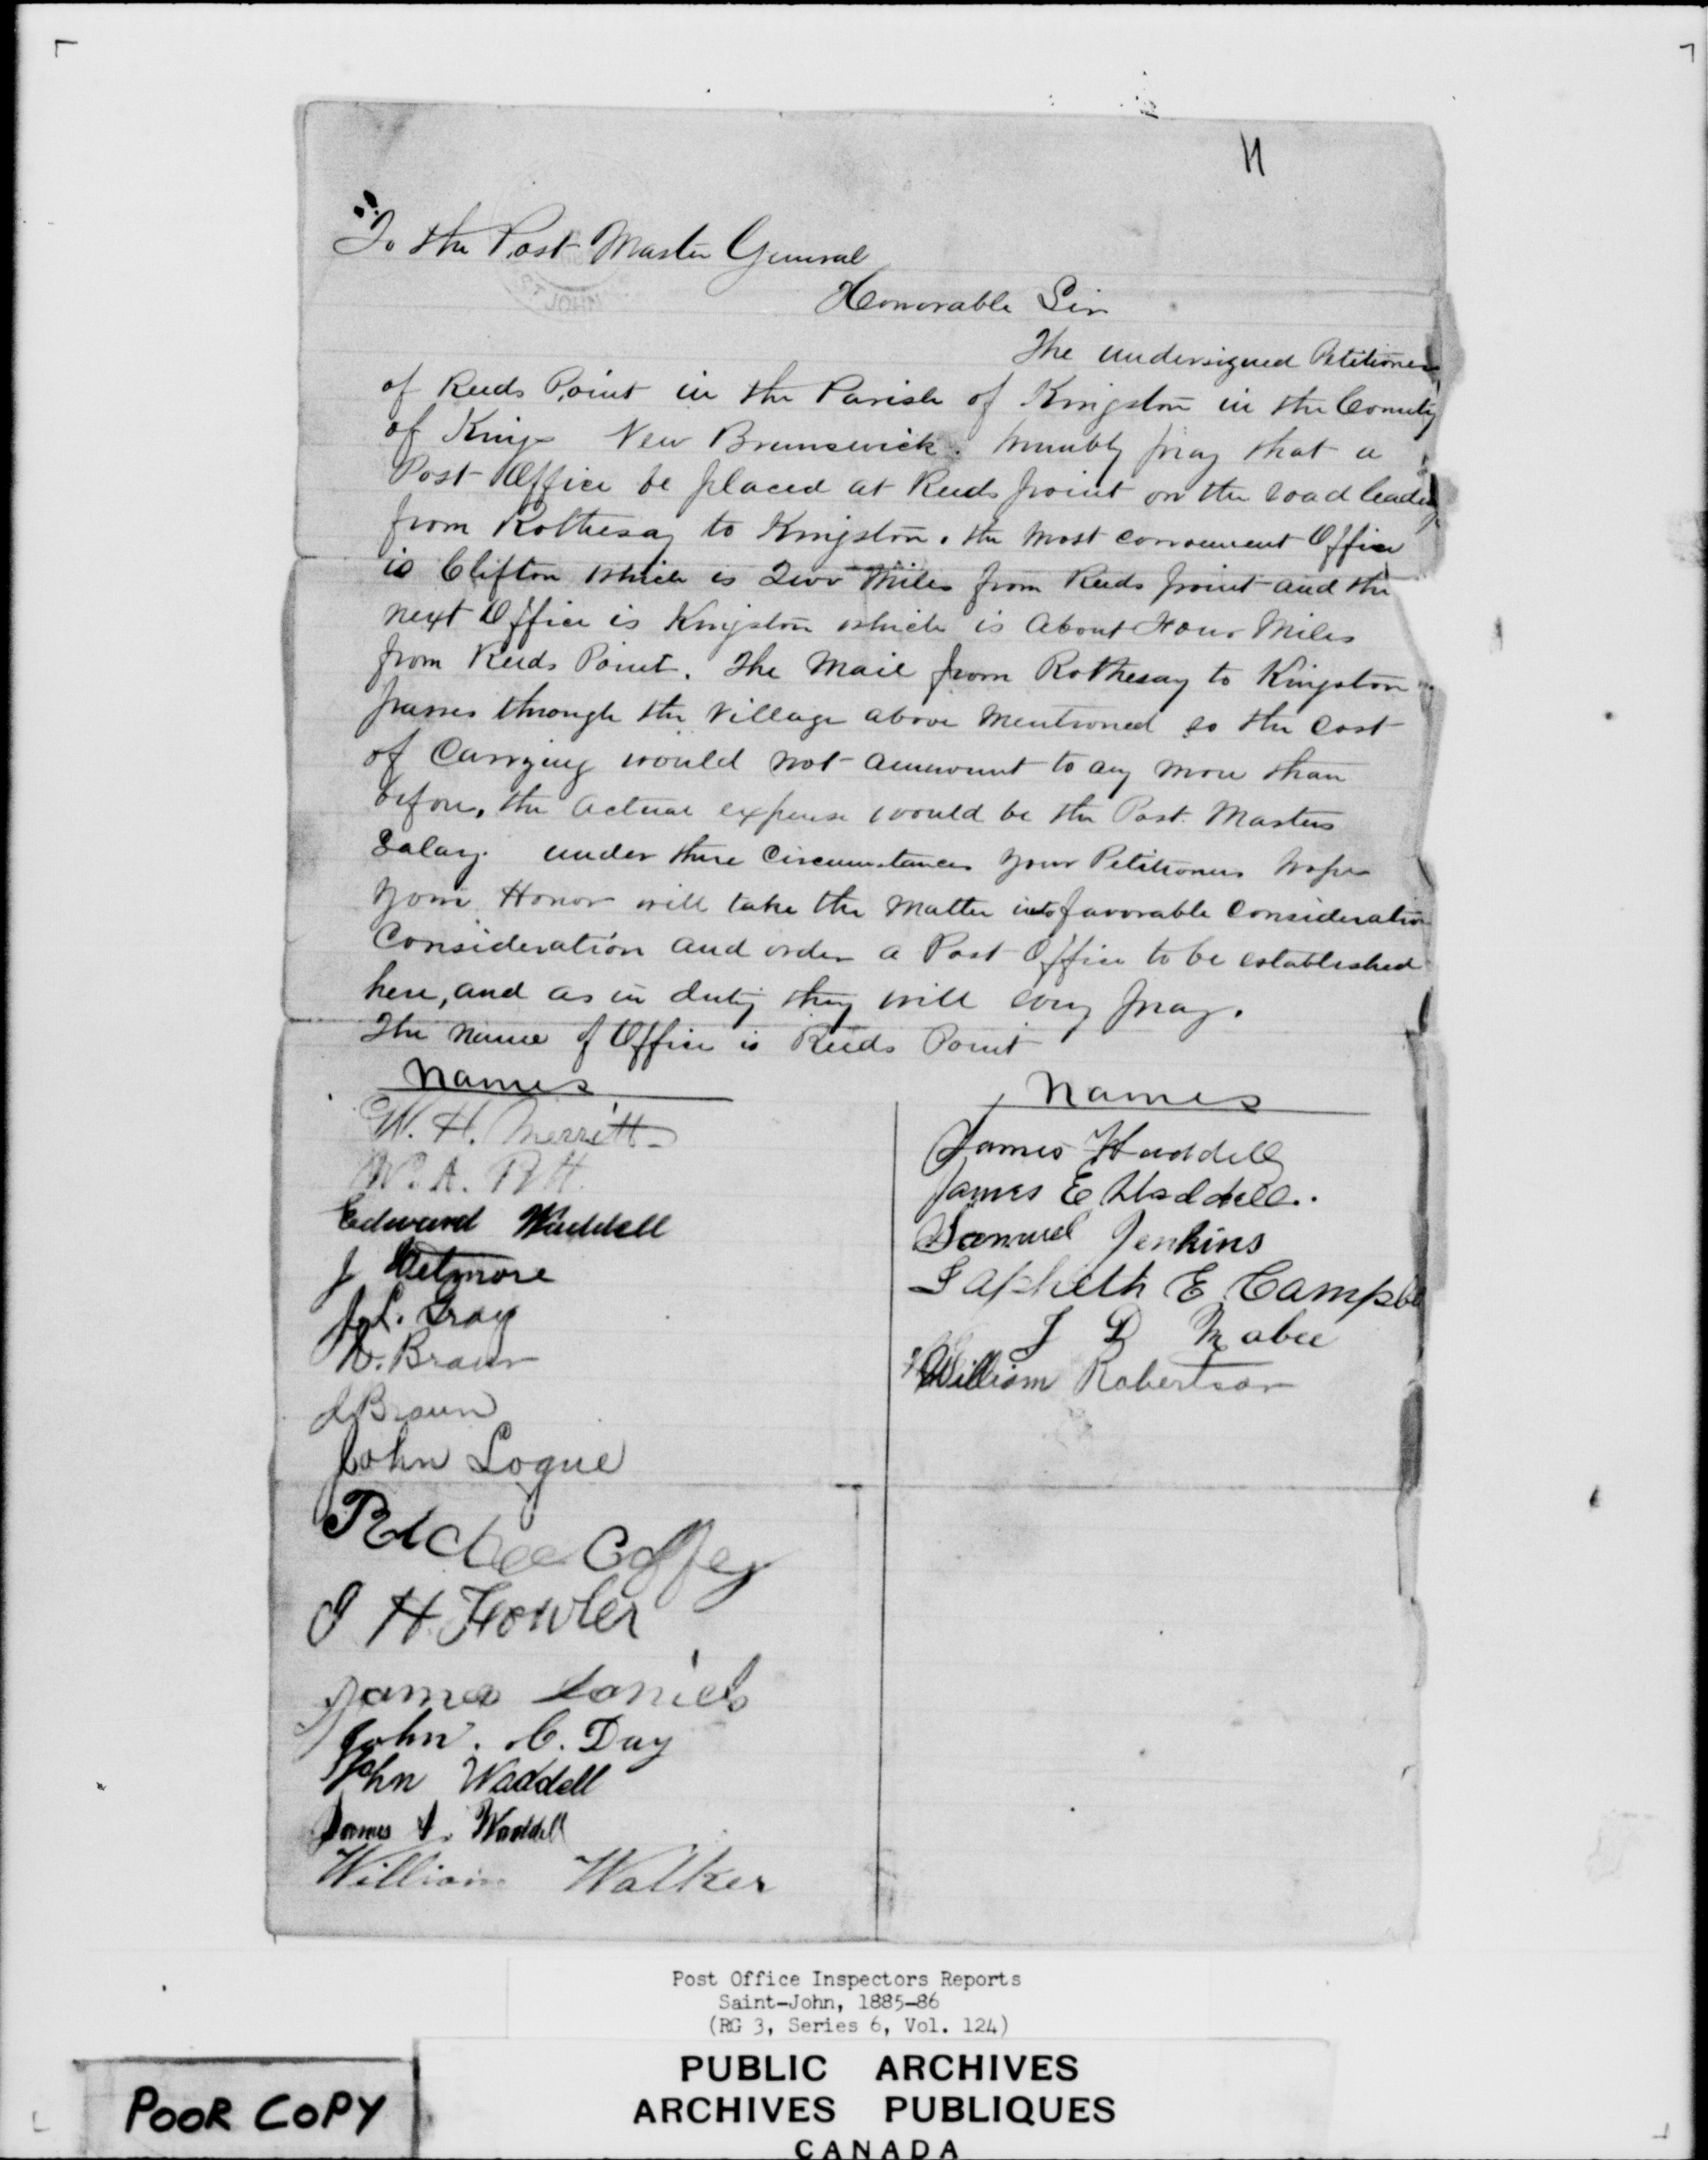 11
To the Post Master General
Honorable Sir
The undersigned Petitioners
of Reeds Point in the Parish of Kingston in the County
of Kings New Brunswick. humbly pray that a
Post Office be placed at Reeds point on the road leading
from Rothesay to Kingston. the most convenient Office
is Clifton which is Two Miles from Reeds point and the
next Office is Kingston which is about Four Miles
from Reeds Point. The Mail from Rothesay to Kingston
passes through the Village above mentioned so the cost
of Carrying would not ammount to any more than
before, the actual expense would be the Post Masters
Salary. under these Circumstances your Petitioners hopes
your Honor will take the matter into favorable Consideration
Consideration and order a Post Office to be established
here, and as in duty they will ever pray.
The name of Office is Reeds Point
Names
W. H. Merritt
W. A. Pitt
Edward Waddell
J Wetmore
J. L. Gray
W. Braun
J Braun
John Logue
Coffey
J H. Fowler
James Daniels
John. C. Day
John Waddell
James A. Waddell
William Walker
Names
James Waddell
James E Waddell.
Samuel Jenkins
Japheth E. Campbell
J D Mabee
William Robertson
ST JOHN
Post Office Inspectors Reports
Saint-John, 1885-86
(RG 3, Series 6, Vol. 124)
PUBLIC ARCHIVES
ARCHIVES PUBLIQUES
CANADA
POOR COPY